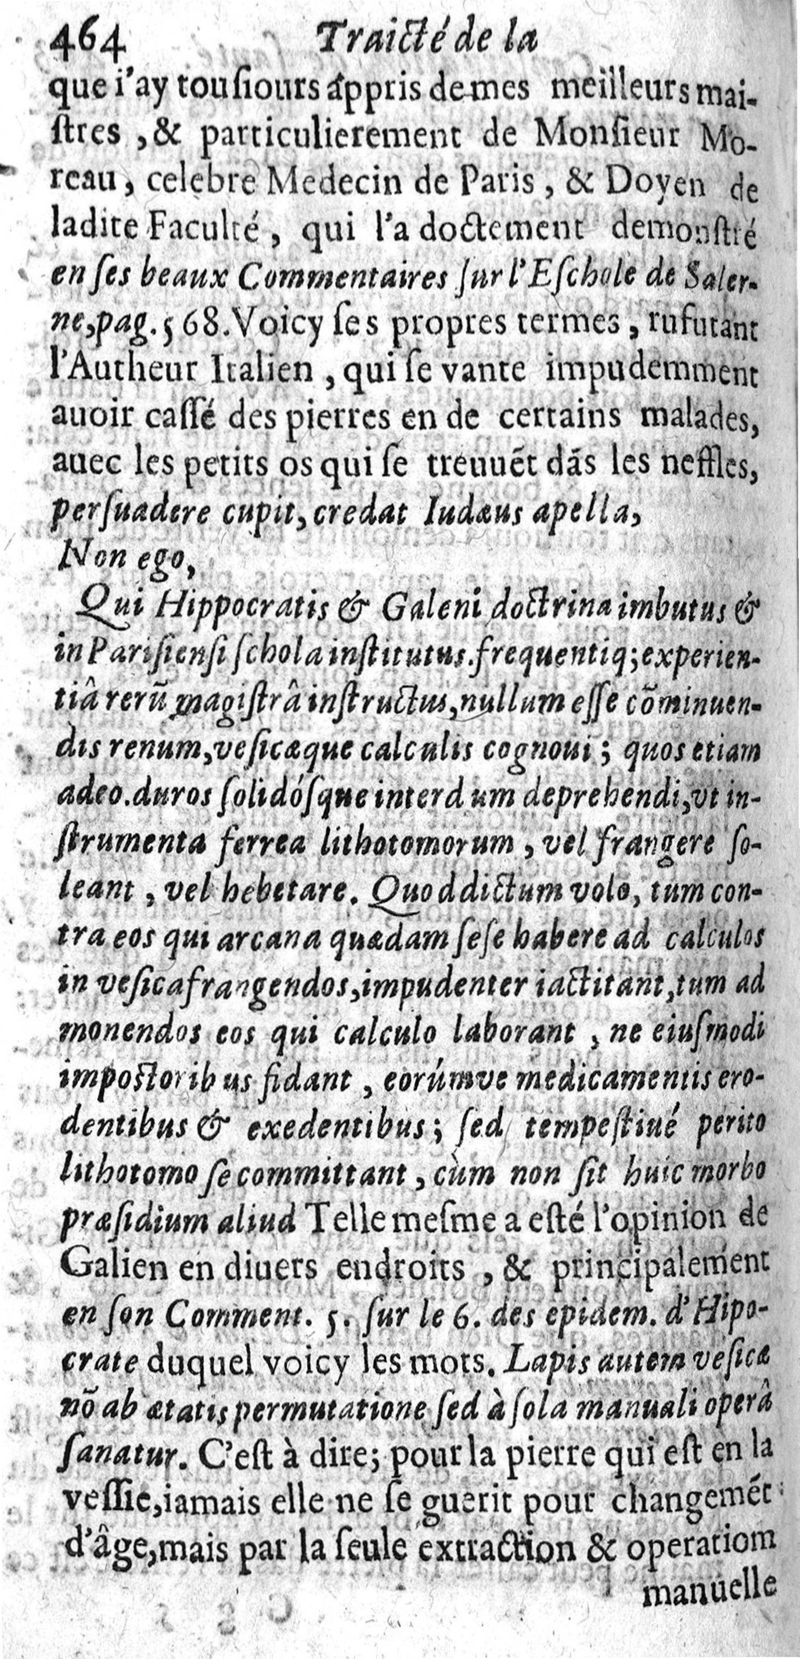 464 Traicté de la
que i'ay touſiours appris de mes meilleurs mai-
ſtres, & particulierement de Monſieur Mo-
reau, celebre Medecin de Paris, & Doyen de
ladite Faculté, qui l'a doctement demonſtré
en ſes beaux Commentaires ſur l'Eſchole de Saler-
ne, pag. 568. Voicy ſes propres termes, rufutant
l'Autheur Italien, qui ſe vante impudemment
auoir caſſé des pierres en de certains malades,
auec les petits os qui ſe treuuẽt dãs les neffles,
perſuadere cupit, credat Iudæus apella,
Non ego,
Qui Hippocratis & Galeni doctrina imbutus &
in Pariſienſi ſchola inſtitutus. frequentiq; experien-
tiâ rerũ magiſtrâ inſtructus, nullum eſſe cõminuen-
dis renum, veſicæque calculis cognoui; quos etiam
adeo. duros ſolidóſque interdum deprehendi, vt in-
ſtrumenta ferrea lithotomorum, vel frangere ſo-
leant, vel hebetare. Quod dictum volo, tum con-
tra eos qui arcana quædam ſeſe habere ad calculos
in veſica frangendos, impudenter iactitant, tum ad
monendos eos qui calculo laborant, ne eiuſmodi
impoſtoribus fidant, eorúmve medicamentis ero-
dentibus & exedentibus; ſed tempeſtiué perito
lithotomo ſe committant, cùm non ſit huic morbo
præſidium aliud Telle meſme a eſté l'opinion de
Galien en diuers endroits, & principalement
en ſon Comment. 5. ſur le 6. des epidem. d'Hipo-
crate duquel voicy les mots. Lapis autem veſicæ
nõ ab ætatis permutatione ſed à ſola manuali operâ
ſanatur. C'eſt à dire; pour la pierre qui eſt en la
veſſie, iamais elle ne ſe guerit pour changemẽt
d'âge, mais par la ſeule extraction & operatiom
manuelle